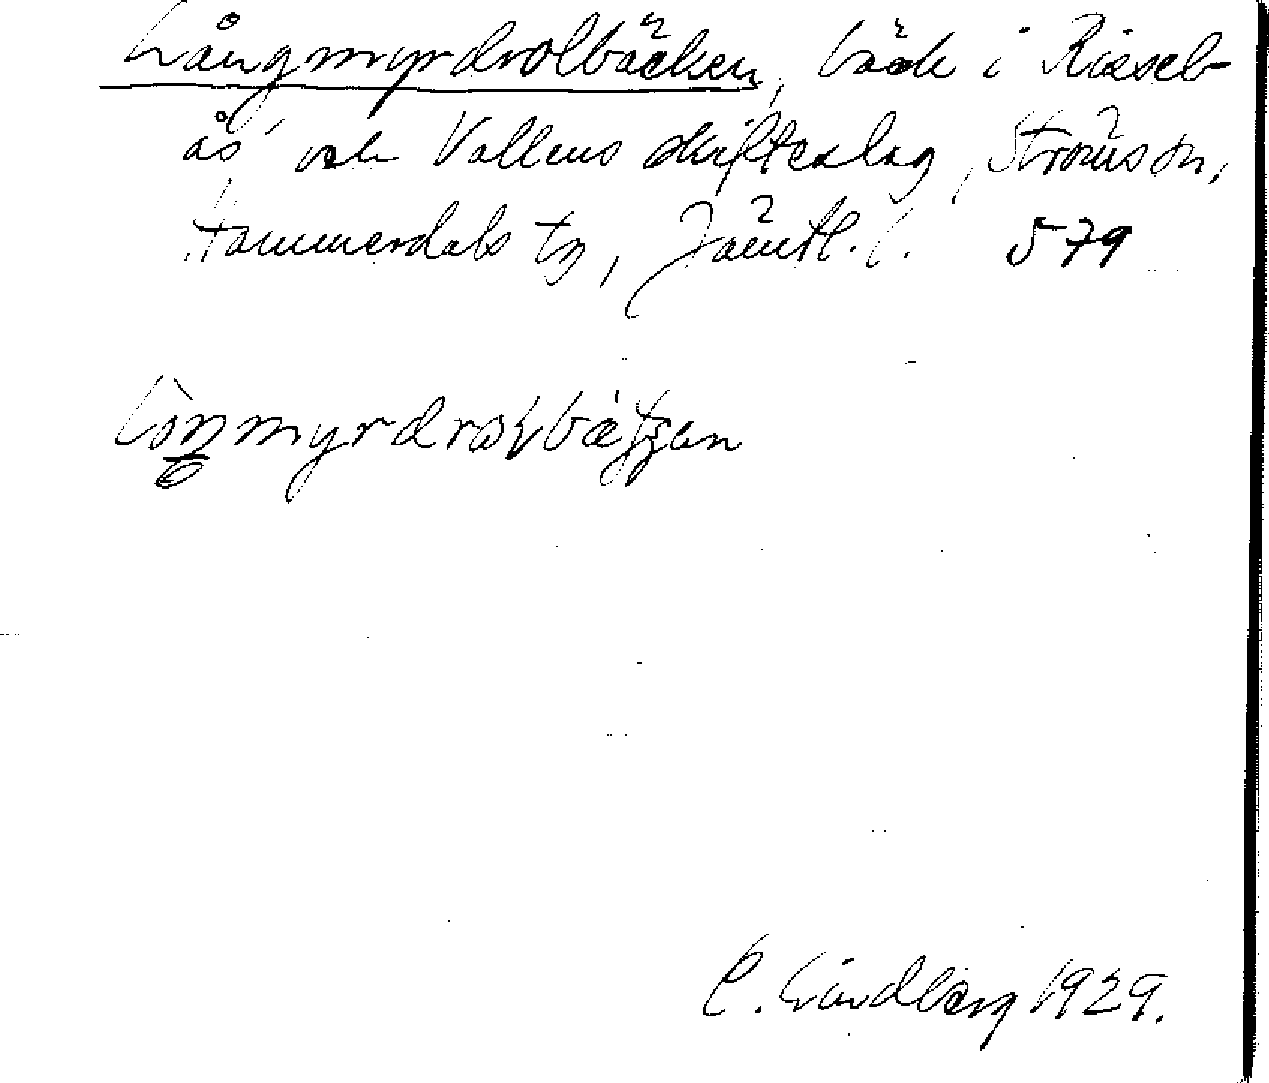 Långmyrdrolbäcken, bäck i Risselå
ås och Vallens skifteslag, Ströms sn,
Hammerdals tg, Jämtl. l. 579
C. Lindberg 1929.